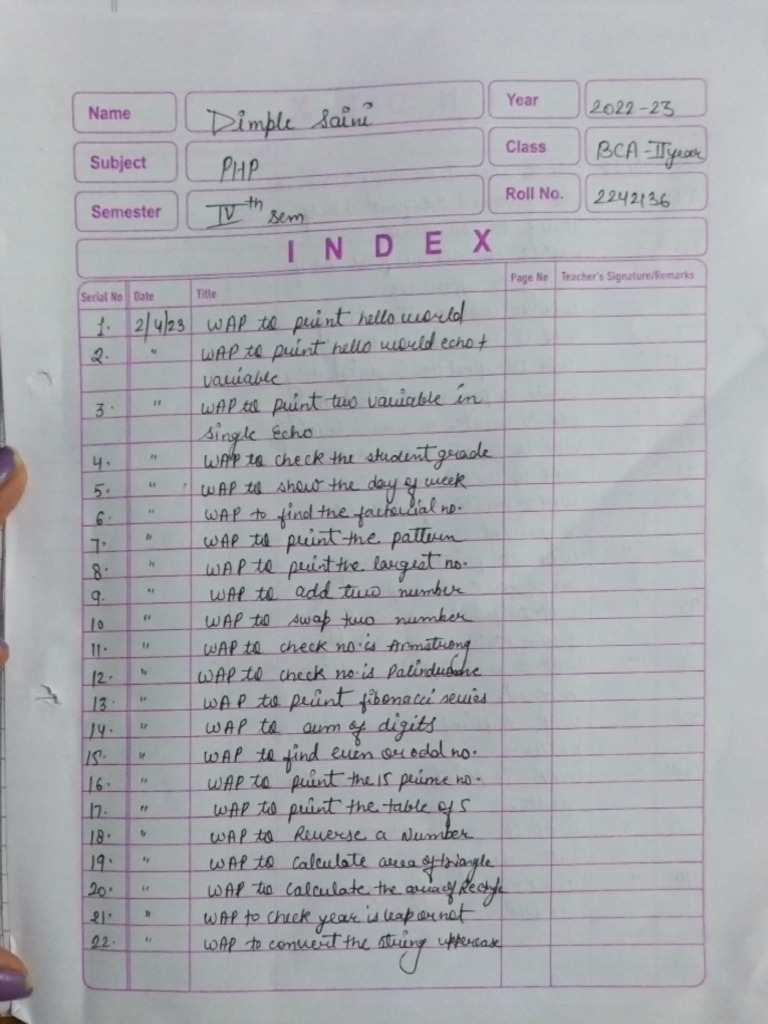 Name Dimple Saini Year 2022-23
Subject PHP Class BCA-II year
Semester IVth sem Roll No. 2242136
INDEX
Serial No Date Title Page No Teacher's Signature/Remarks
1. 2/4/23 WAP to print hello world
2. " WAP to print hello world echo +
variable
3. " WAP to print two variable in
single Echo
4. " WAP to check the student grade
5. " WAP to show the day of week
6. " WAP to find the factorial no.
7. " WAP to print the pattern
8. " WAP to print the largest no.
9. " WAP to add two number
10 " WAP to swap two number
11. " WAP to check no. is Armstrong
12. " WAP to check no. is
13. " WAP to print fibonacci series
14. " WAP to sum of digits
15. " WAP to find even or odd no.
16. " WAP to print the 15 prime no.
17. " WAP to print the table of 5
18. " WAP to Reverse a Number
19. " WAP to calculate area of triangle
20. " WAP to calculate the area of
21. " WAP to check year is leap or not
22. " WAP to convert the string uppercase